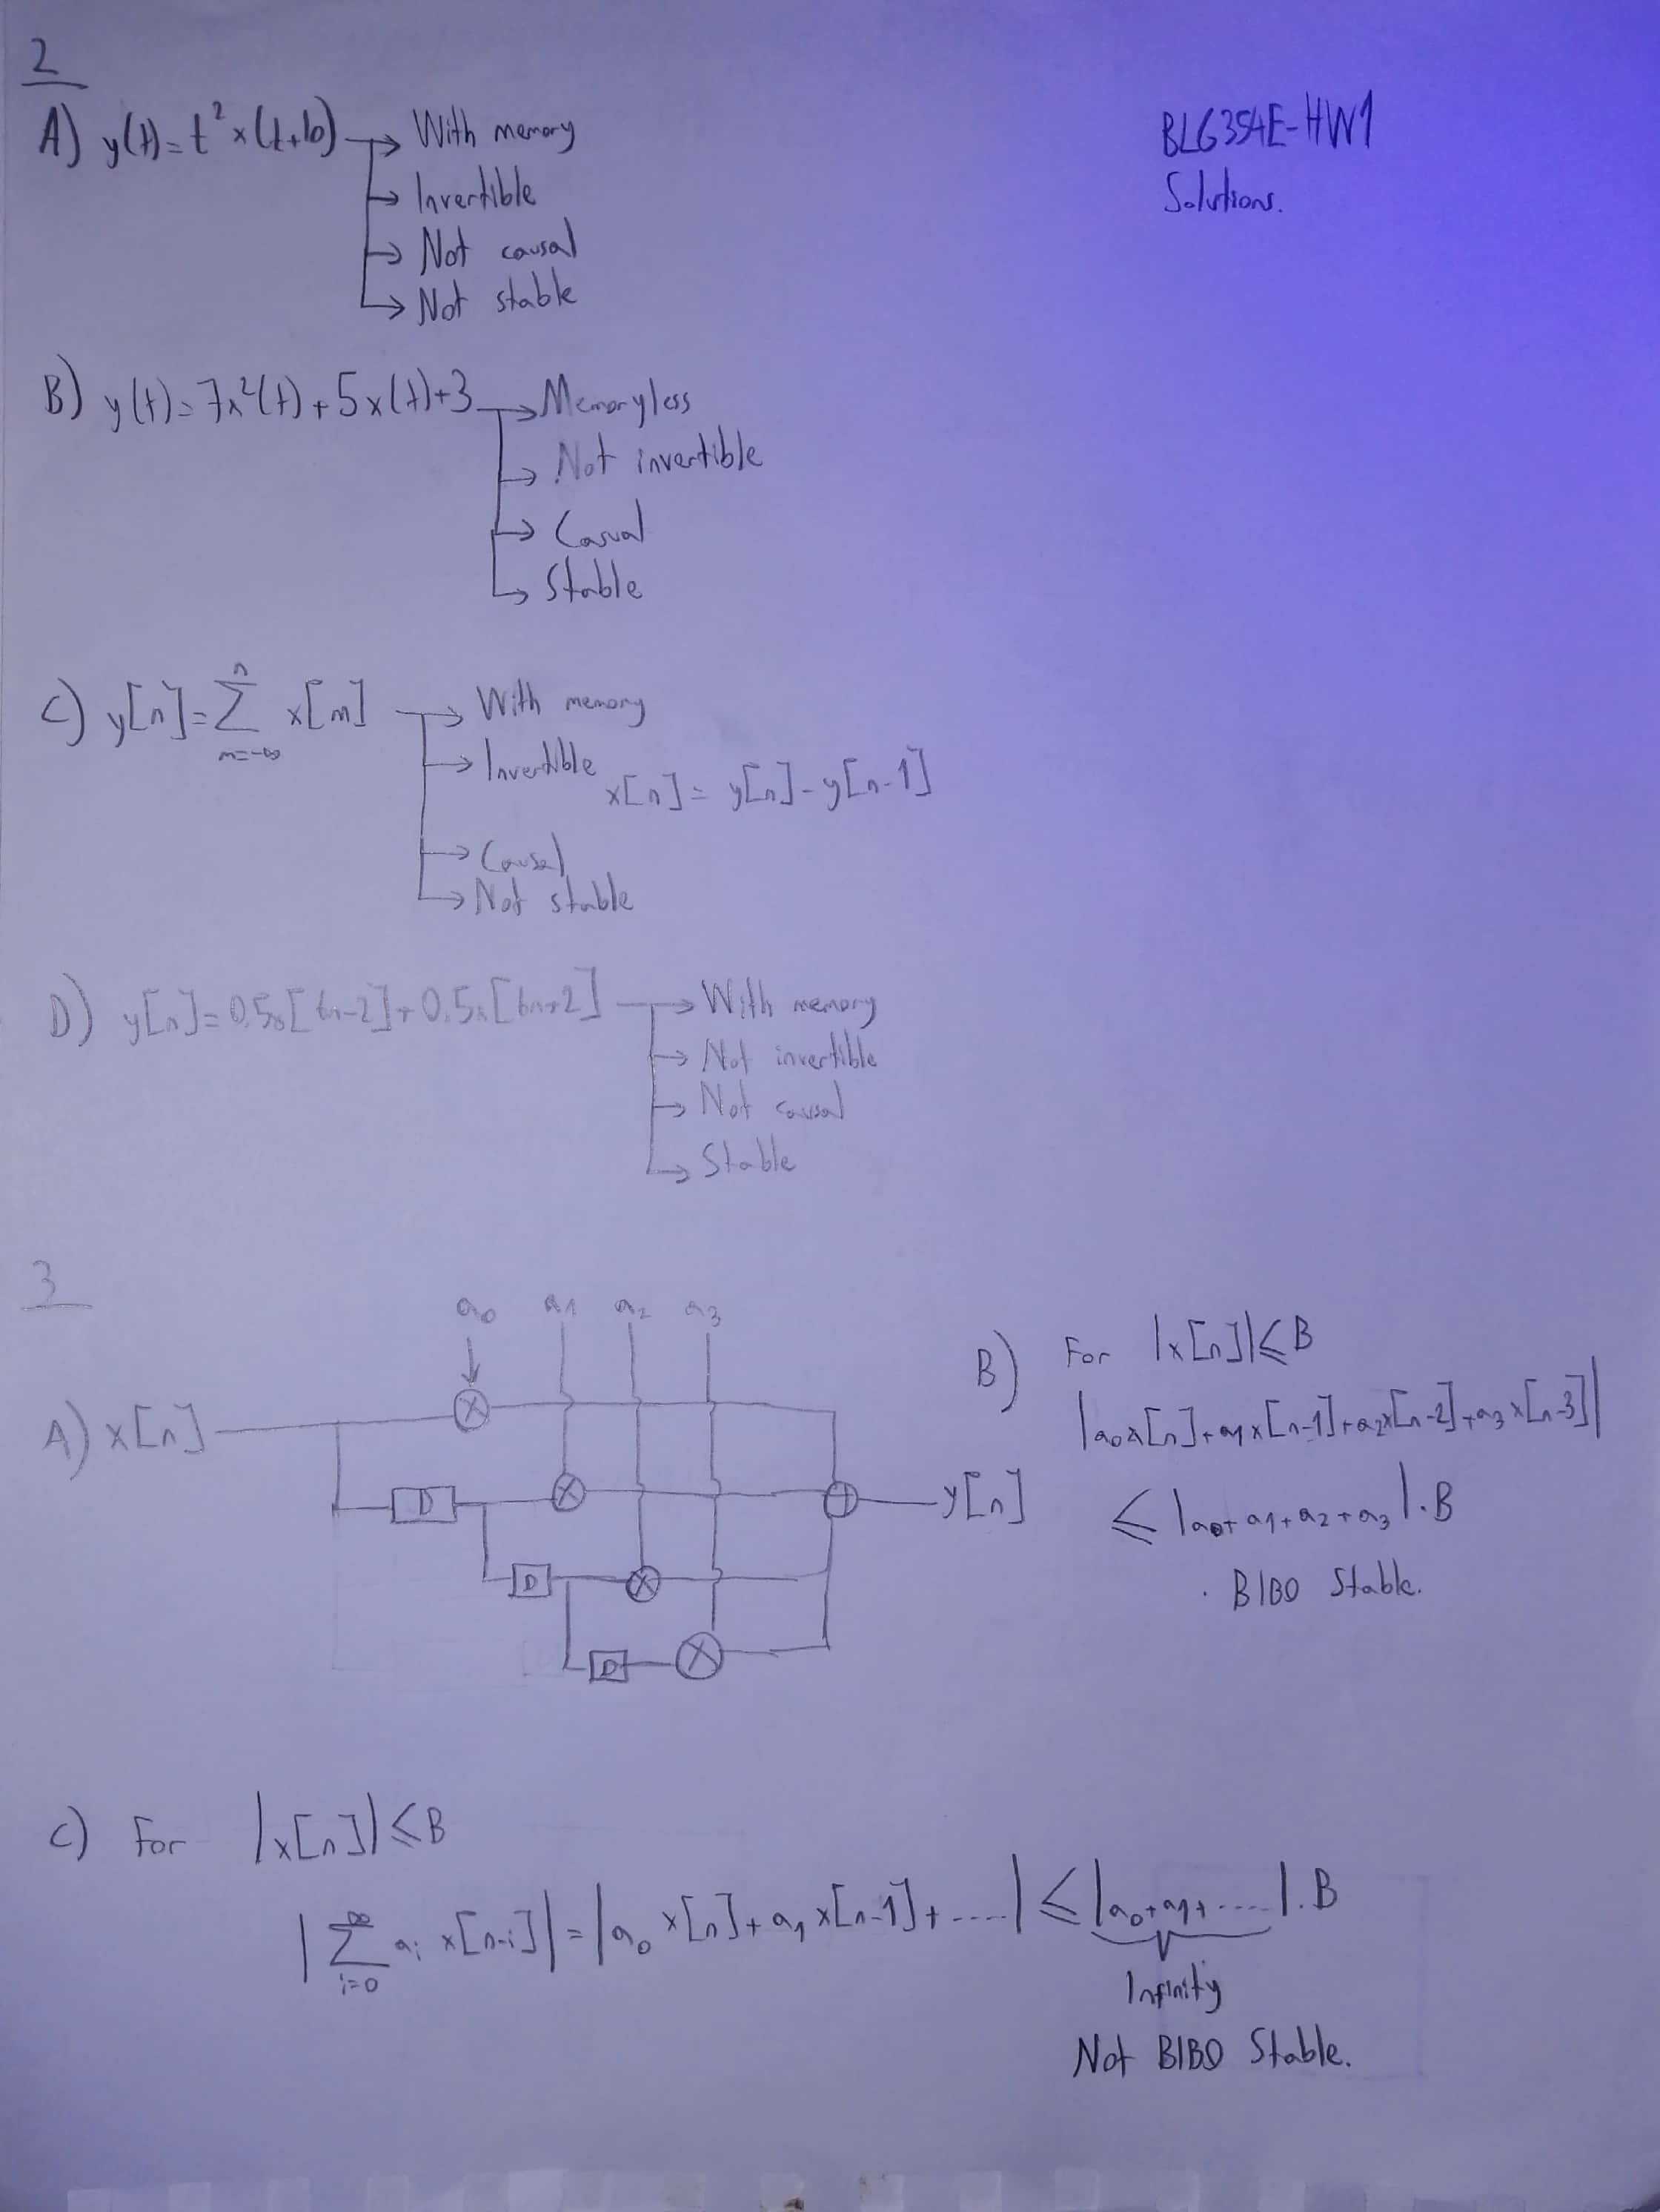 BLG354E-HW1
Solutions.
2
A) y(t)=t²x(t+b) → With memory
→ Invertible
→ Not causal
→ Not stable
B) y(t)=7x²(t)+5x(t)+3 → Memoryless
→ Not invertible
→ Casual
→ Stable
C) y[n]=∑ x[m] → With memory
n
m=-∞
→ Invertible
x[n]=y[n]-y[n-1]
→ Causal
→ Not stable
D) y[n]=0.5x[6n-2]+0.5x[6n+2] → With memory
→ Not invertible
→ Not causal
→ Stable
3
a0 a1 a2 a3
A) x[n]
D
D
D
y[n]
B) For |x[n]|≤B
|a0x[n]+a1x[n-1]+a2x[n-2]+a3x[n-3]|
≤ |a0+a1+a2+a3|.B
. BIBO Stable.
C) For |x[n]|≤B
|∑ ai x[n-i]|=|a0 x[n]+a1 x[n-1]+.....|≤|a0+a1+.....|.B
∞
i=0
Infinity
Not BIBO Stable.